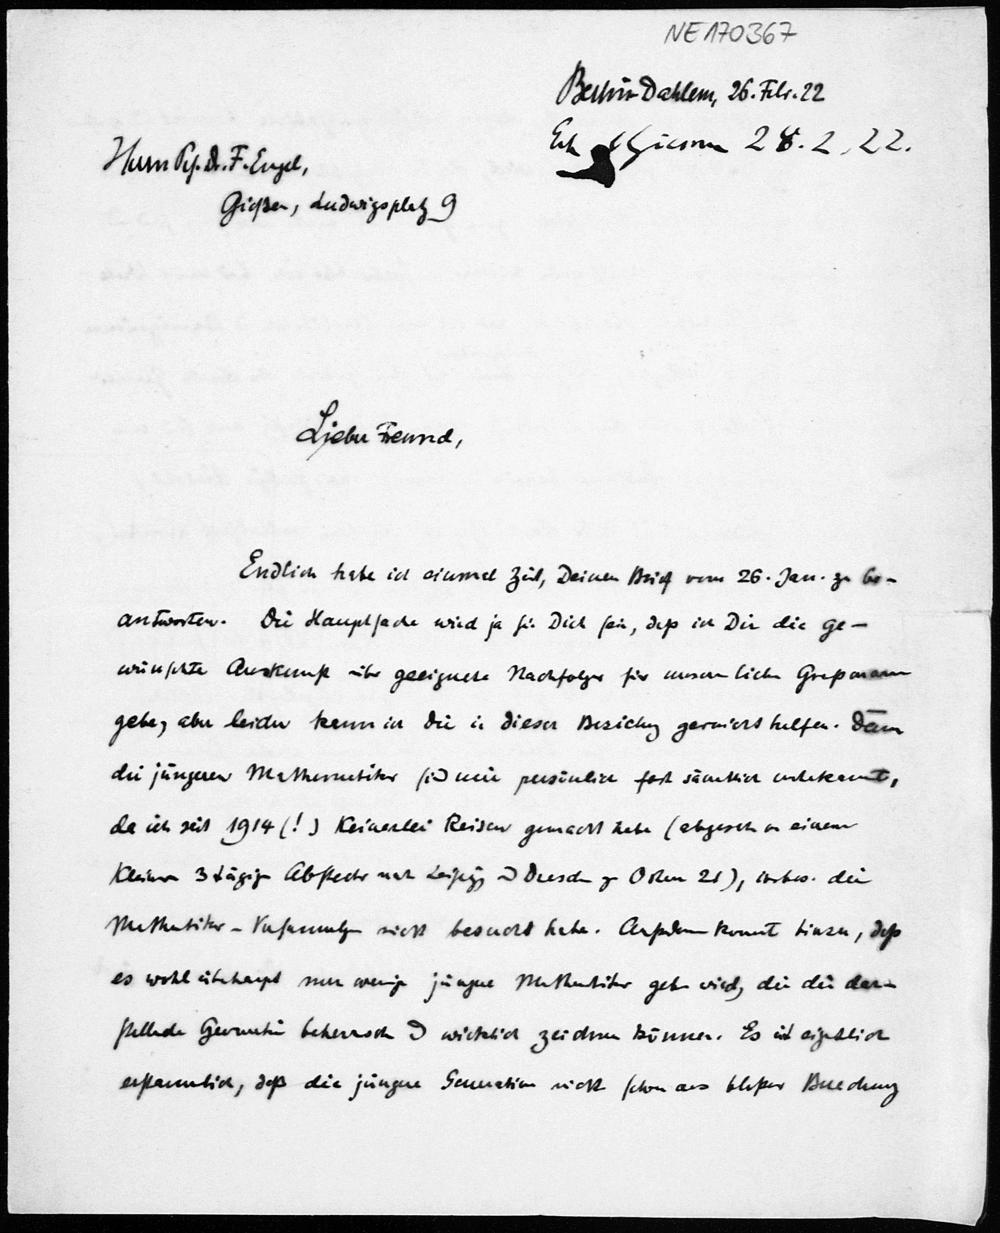 NE170367
Berlin-Dahlem, 26. Febr. 22
Giessen 28.2.22.
Herrn Prof. Dr. F. Engel,
Gießen, Ludwigsplatz 9
Lieber Freund,
Endlich habe ich einmal Zeit, Deinen Brief vom 26. Jan. zu be-
antworten. Die Hauptsache wird ja für Dich sein, daß ich Dir die ge-
wünschte Auskunft über geeignete Nachfolger für unseren lieben Graßmann
gebe, aber leider kann ich Dir in dieser Beziehung garnicht helfen. Denn
die jüngeren Mathematiker sind mir persönlich fast sämtlich unbekannt,
da ich seit 1914 (!) keinerlei Reisen gemacht habe (abgesehen von einem
kleinen 3 tägigen Abstecher nach Leipzig und Dresden zu Ostern 21), insbes. die
Mathematiker-Versammlungen nicht besucht habe. Außerdem kommt hinzu, daß
es wohl überhaupt nur wenige jüngere Mathematiker geben wird, die die dar-
stellende Geometrie beherrschen und wirklich zeichnen können. Es ist eigentlich
erstaunlich, daß die jüngere Generation nicht schon aus bloßer Berechnung